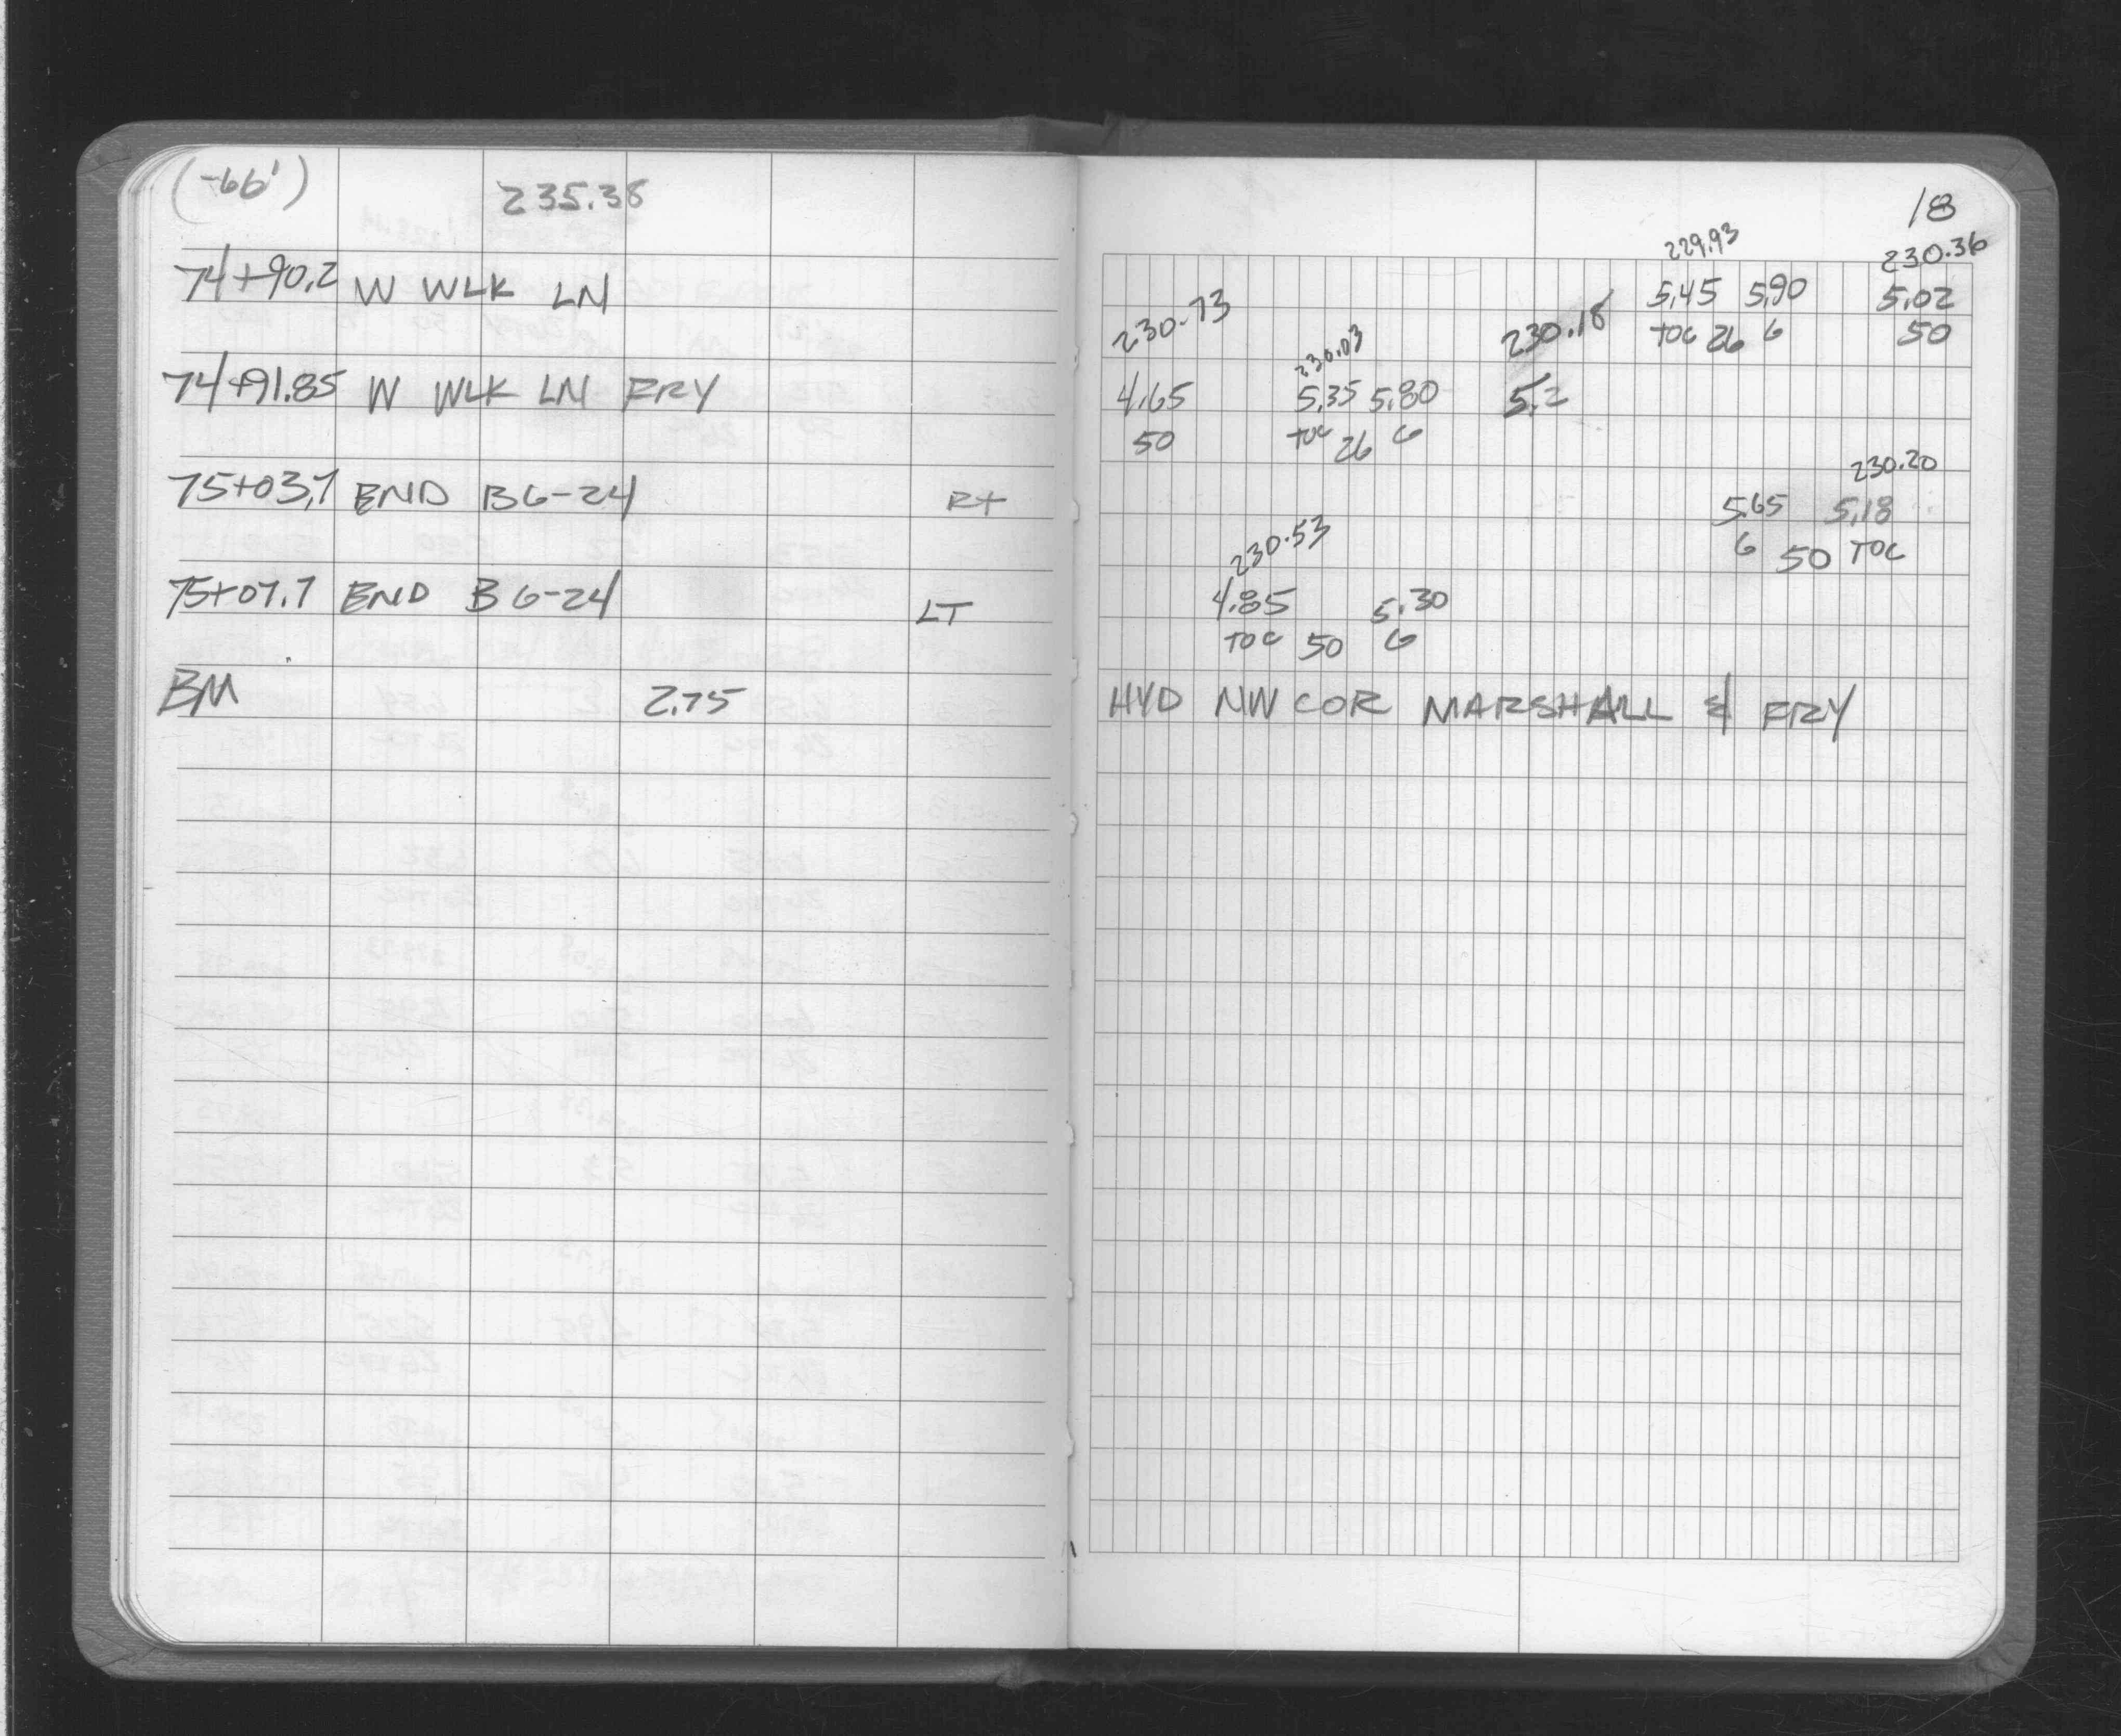 (-66') 235.38
74+90.2 W WLK LN
74+91.85 W WLK LN FRY
75+03.7 END B6-24 Rt
75+07.7 END B6-24 LT
BM 2.75
18
229.93 230.36
5.45 5.90 5.02
TOC 26 6 50
230.73 230.03 230.18
4.65 5.35 5.80 5.2
50 TOC 26 6
230.20
5.65 5.18
6 50 TOC
230.53
4.85 5.30
TOC 50 6
HYD NW COR MARSHALL & FRY